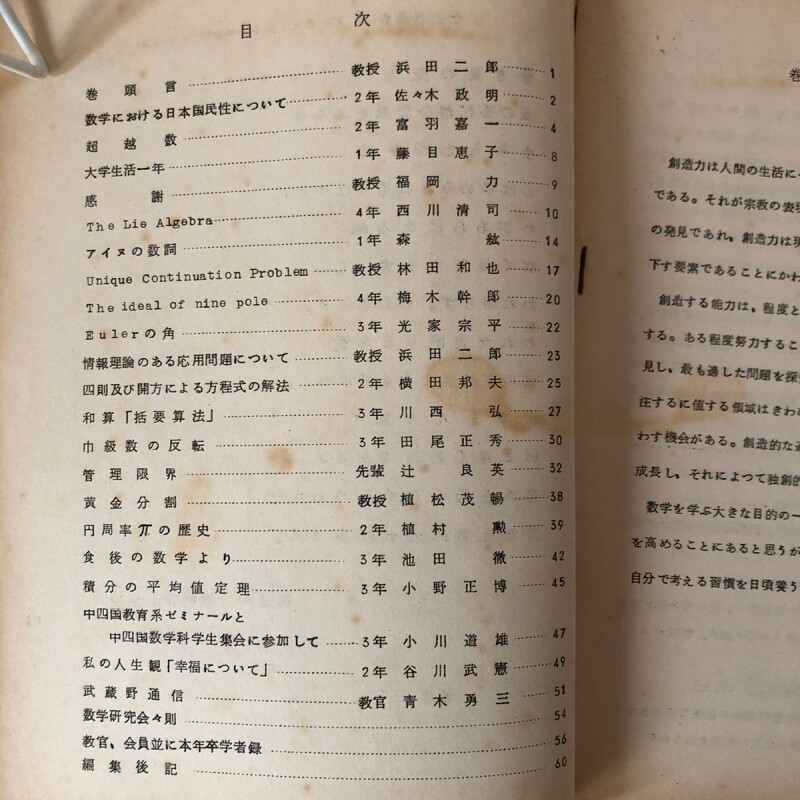 目次
巻頭言……教授 浜田二郎……1
数学における日本国民性について……2年 佐々木政明……2
超越数……2年 富羽嘉一……4
大学生活一年……1年 藤目恵子……8
感謝……教授 福岡力……9
The Lie Algebra……4年 西川清司……10
アイヌの数詞……1年 森紘……14
Unique Continuation Problem……教授 林田和也……17
The ideal of nine pole……4年 梅木幹郎……20
Eulerの角……3年 光家宗平……22
情報理論のある応用問題について……教授 浜田二郎……23
四則及び開方による方程式の解法……2年 横田邦夫……25
和算「括要算法」……3年 川西弘……27
巾級数の反転……3年 田尾正秀……30
管理限界……先輩 辻良英……32
黄金分割……教授 植松茂暢……38
円周率πの歴史……2年 植村勲……39
食後の数学より……3年 池田徹……42
積分の平均値定理……3年 小野正博……45
中四国教育系ゼミナールと
中四国数学科学生集会に参加して……3年 小川道雄……47
私の人生観「幸福について」……2年 谷川武憲……49
武蔵野通信……教官 青木勇三……51
数学研究会々則……54
教官、会員並に本年卒学者録……56
編集後記……60
巻
創造力は人間の生活に
である。それが宗教の表現
の発見であれ、創造力は現
下す要素であることにかわ
創造する能力は、程度と
する。ある程度努力するこ
見し、最も適した問題を探
注するに値する領域はきわめ
わす機会がある。創造的な
成長し、それによつて独創的
数学を学ぶ大きな目的の一
を高めることにあると思うが
自分で考える習慣を日頃養う